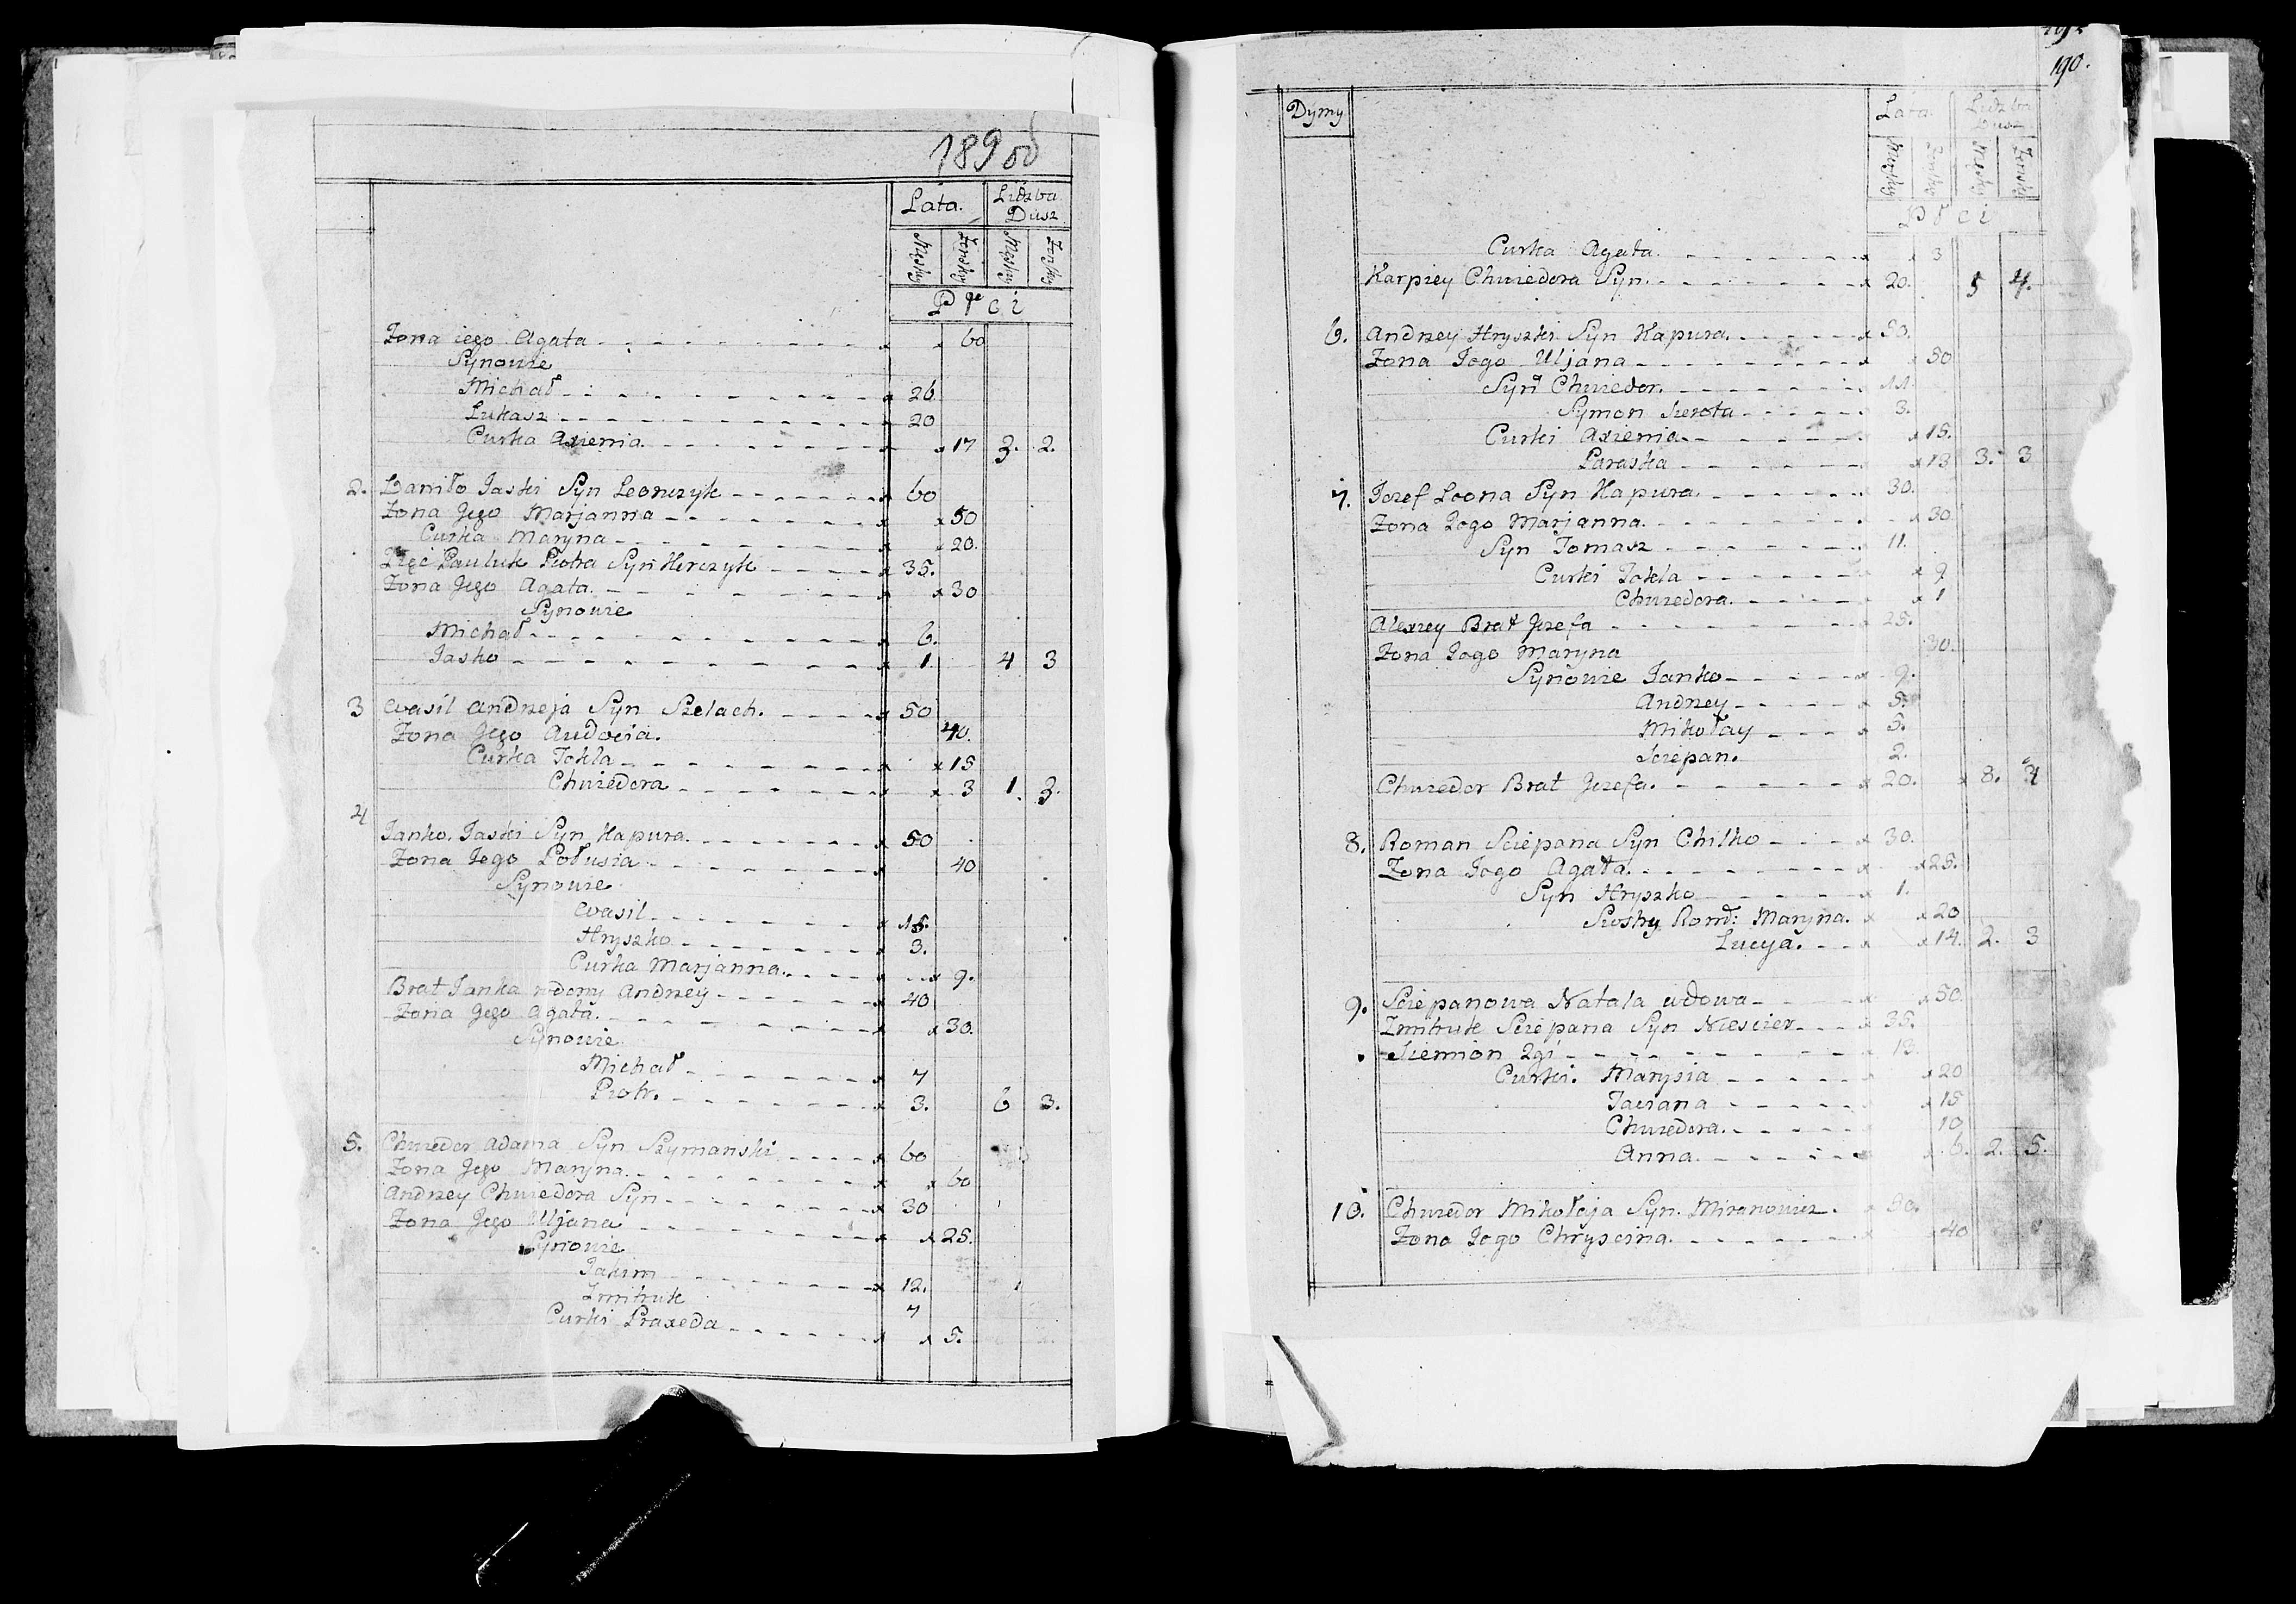 189 об
Lata. Liczba Dusz
Męzkiey Zenskiey Męzkiey Zenskiey
Płci
Zona iego Agata 60
Synowie
Michał 26
Lukasz 20
Curka Axienia 17 3. 2.
2. Daniło Jaski Syn Leonczyk 60
Zona Jego Marjanna 50
Curka Maryna 20.
Zięć Pauluk Piotra Syn Herczyk 35.
Zona Jego Agata. 30
Synowie
Michał 6.
Jasko 1. 4 3
3 Wasil Andrzeja Syn Szelach. 50
Zona Jego Audocia. 40.
Curka Tekla 15
Chwiedora 3 1. 3.
4
Janko Jaski Syn Kapura. 50
Zona Jego Połusia 40
Synowie
Wasil 15.
Hryszko 3.
Curka Marjanna. 9.
Brat Janka rodony Andrzey 40
Zona Jego Agata. 30.
Synowie
Michał 7
Piotr. 3. 6 3.
5. Chwiedor Adama Syn Szymanski 60
Zona Jego Maryna. 60
Andrzey Chwiedora Syn 30
Zona Jego Uljana 25.
Synowie
Jakim 12.
Zmitruk 7
Curki Praxeda 5.
190.
Dymy Lata. Liczba Dusz
Męzkiey Zenskiey Męzkiey Zenskiey
Płci
Curka Agata. 3
Karpiey Chwiedora Syn. 20. 5 4.
6. Andrzey Hryszki Syn Kapura. 50.
Zona Jego Uljana 50
Syn Chwiedor. 11.
Symon Sierota 3.
Curki Axienia 15.
Paraska 13 3. 3
7. Jozef Leona Syn Kapura. 30.
Zona Jego Marjanna. 30
Syn Tomasz 11.
Curki Tekla 9
Chwiedora. 1
Alexiey Brat Jozefa 25.
Zona Jego Maryna 30.
Synowie Janko 9.
Andrzey 5.
Mikołay 5.
Sciepan. 2.
Chwiedor Brat Jozefa. 20. 8. 4
8. Roman Sciepana Syn Chilko 30.
Zona Jego Agata. 25.
Syn Hryszko 1.
Siostry Rom: Maryna. 20
Lucya. 14. 2. 3
9. Sciepanowa Natala wdowa 50.
Zmitruk Sciepana Syn Niescier 35.
Siemion 2gi 13.
Curki. Marysia 20
Taciana 15
Chwiedora. 10
Anna. 6. 2. 5.
10. Chwiedor Mikołaja Syn. Mironowicz. 30.
Zona Jego Chryscina. 40